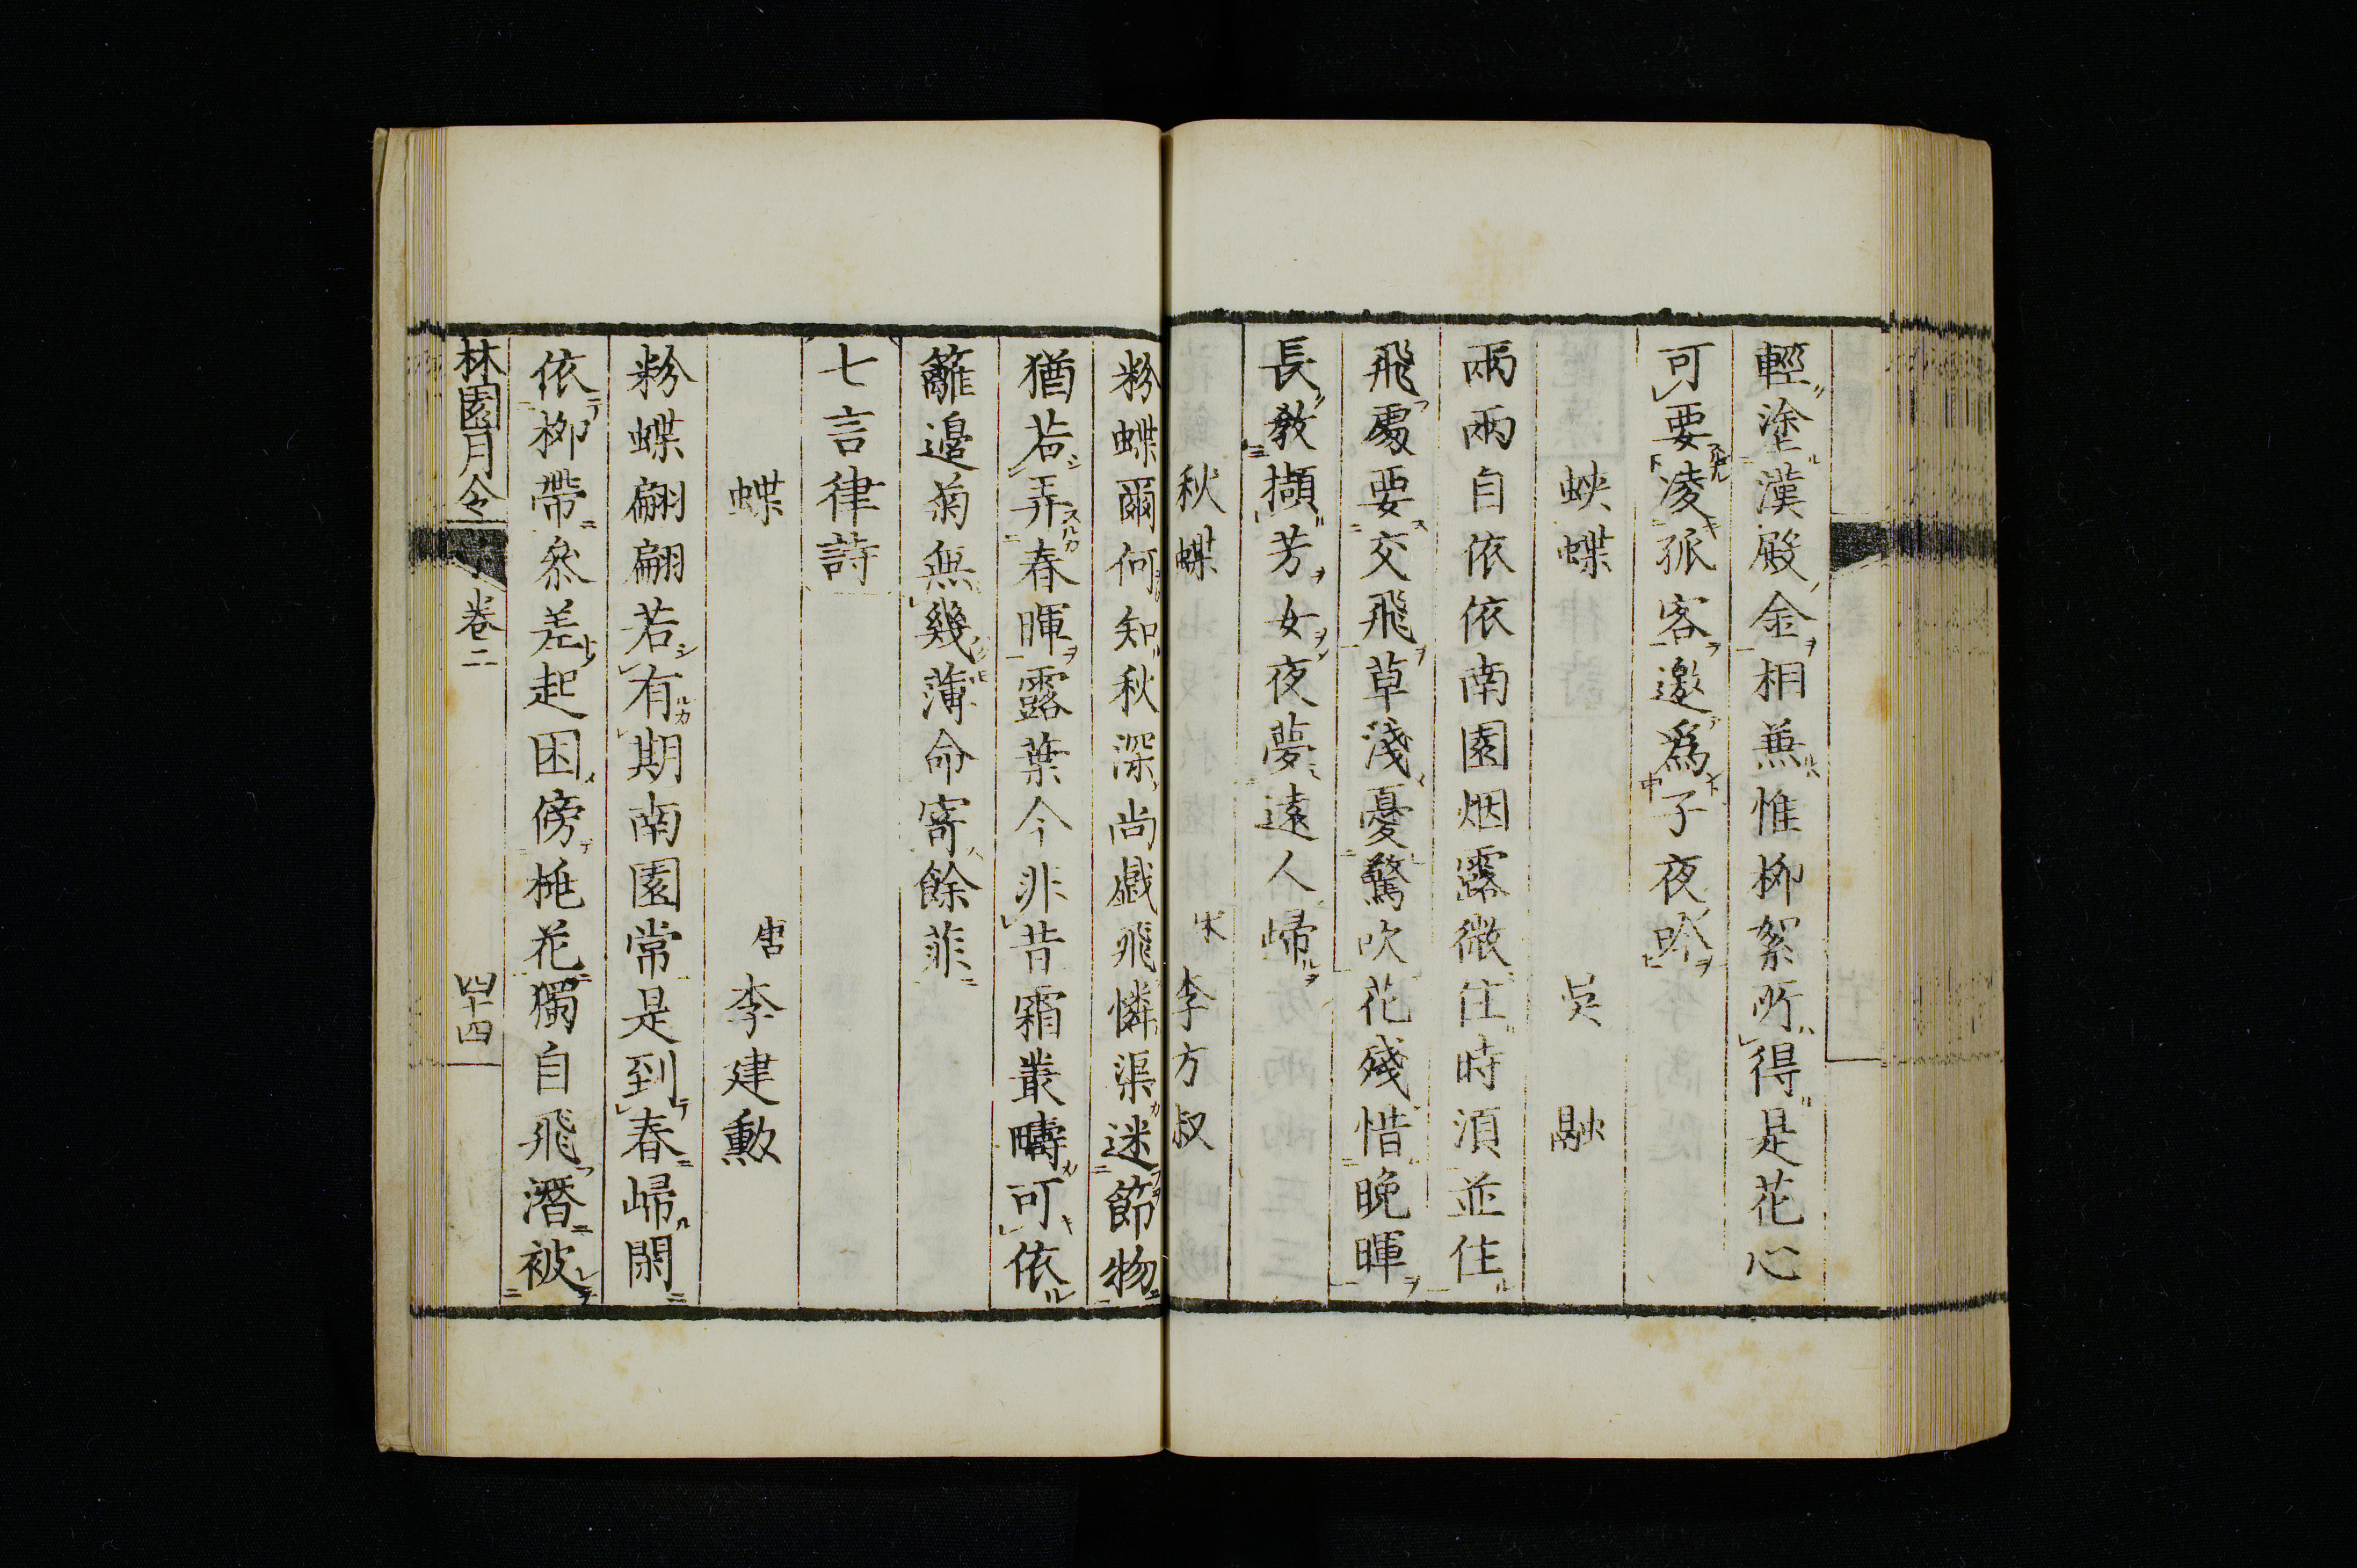 輕塗漢殿金相兼惟柳絮所得是花心
可要凌孤客邀爲子夜吟
蛺蝶 吳 融
兩兩自依依南園烟露微住時湏並住
飛處要交飛草淺憂驚吹花殘惜晚暉
長教擷芳女夜夢遠人歸
秋蝶 宋 李方叔
粉蝶爾何知秋深尚戯飛憐渠迷節物
猶若弄春暉露葉今非昔霜叢疇可依
籬邉菊無幾薄命寄餘菲
七言律詩
蝶 唐 李建勲
粉蝶翩翩若有期南園常是到春歸閑
依柳帶參差起困傍桃花獨自飛潛被
林園月令 卷二 四十四